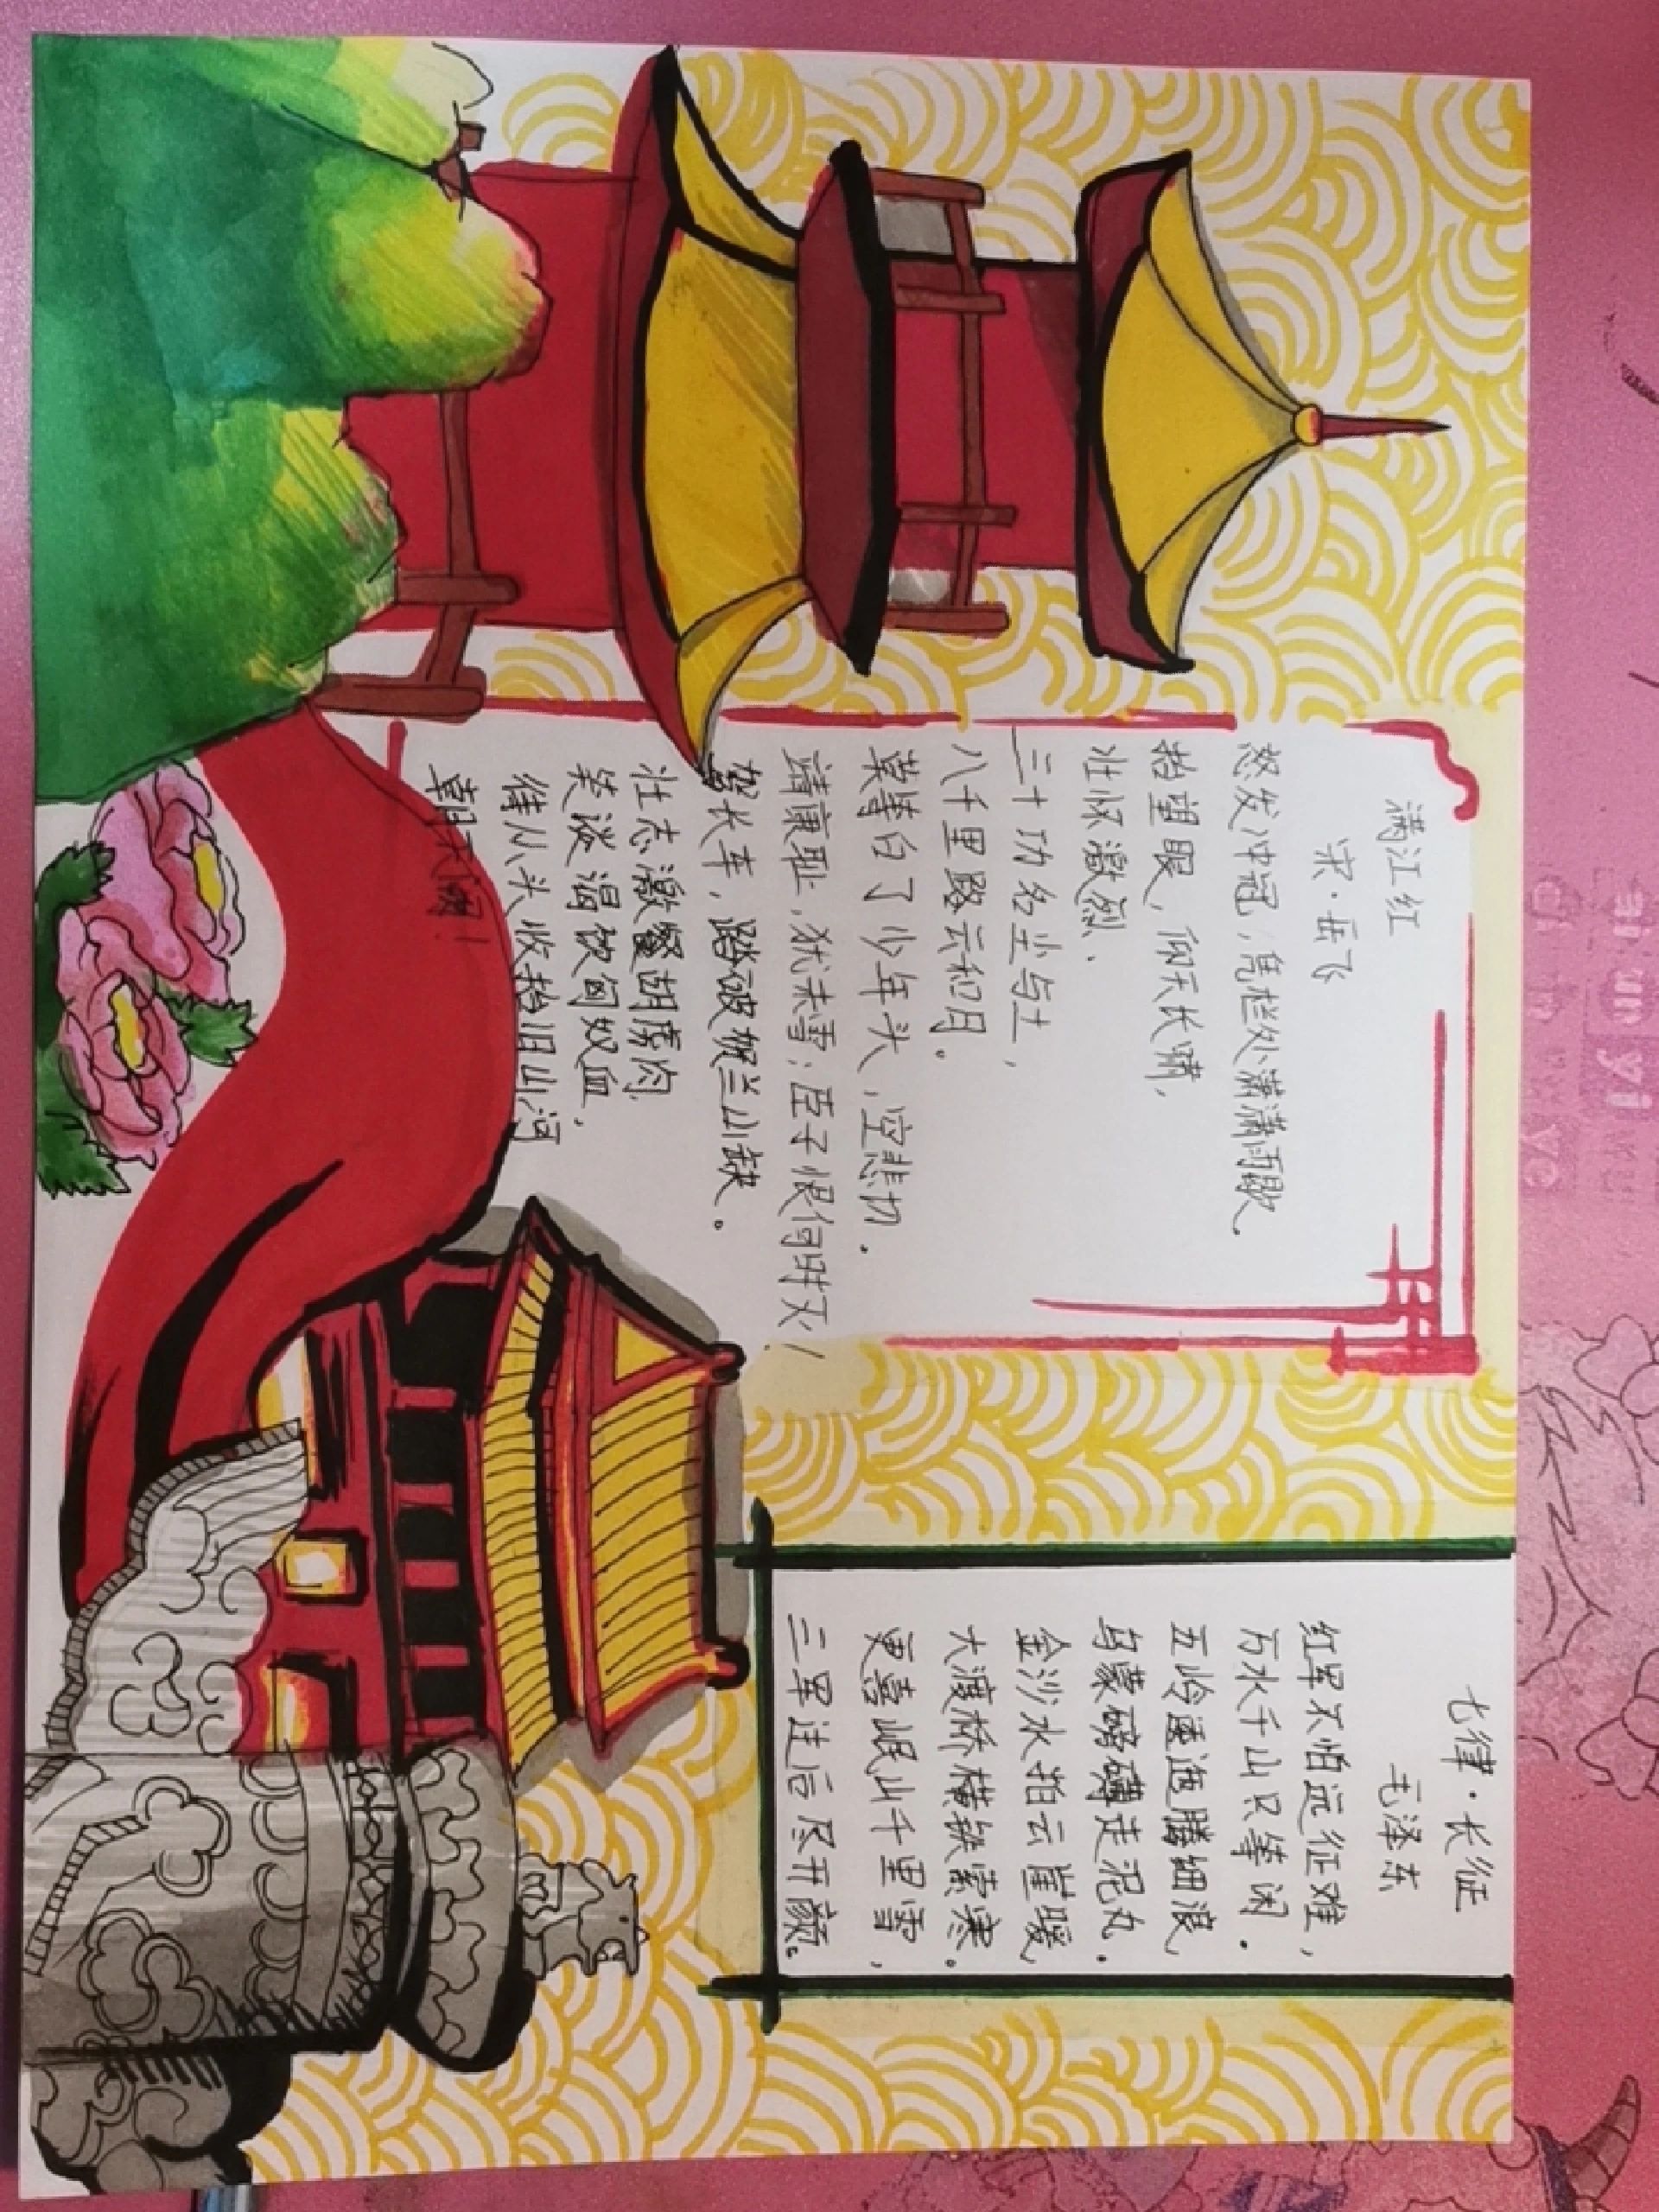 满江红
宋·岳飞
怒发冲冠，凭栏处潇潇雨歇.
抬望眼，仰天长啸，
壮怀激烈.
三十功名尘与土，
八千里路云和月。
莫等白了少年头，空悲切.
靖康耻，犹未雪；臣子恨何时灭！
驾长车，踏破贺兰山缺。
壮志激餐胡虏肉
笑谈渴饮匈奴血，
待从头收拾旧山河
朝天阙！
七律·长征
毛泽东
红军不怕远征难，
万水千山只等闲.
五岭逶迤腾细浪，
乌蒙磅礴走泥丸.
金沙水拍云崖暖
大渡桥横铁索寒。
更喜岷山千里雪，
三军过后尽开颜。